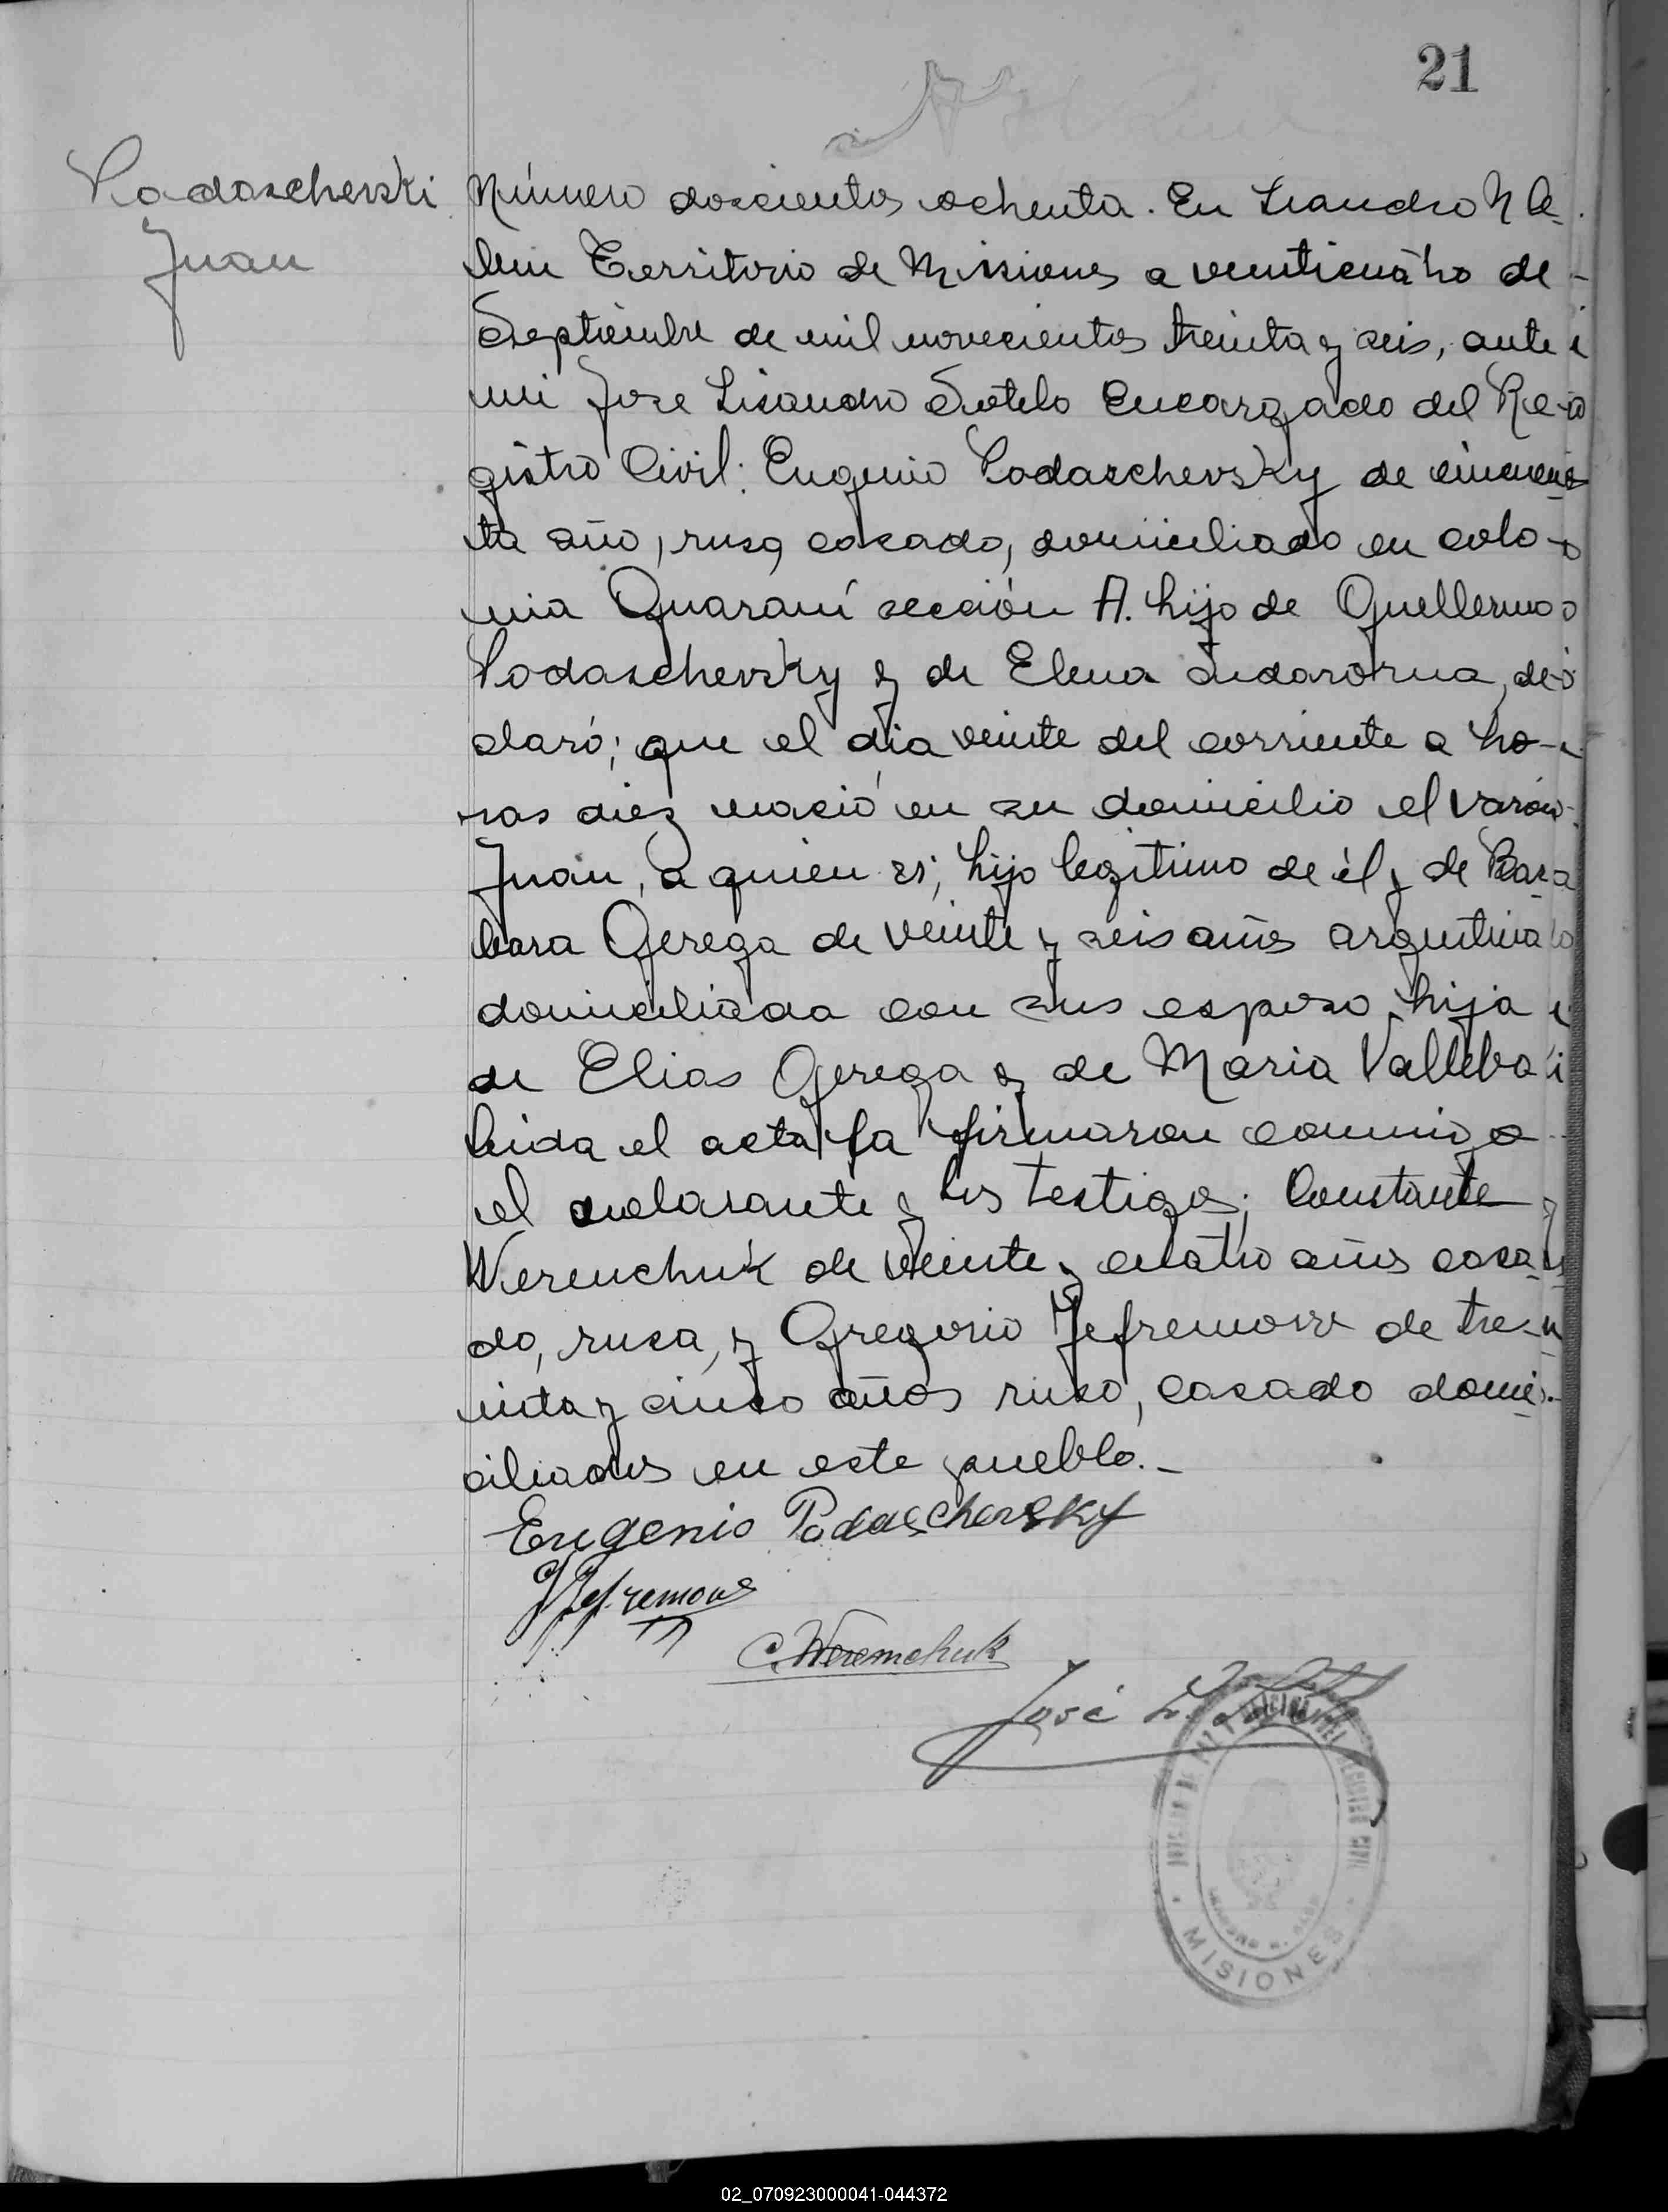 21
Podaschevski
Juan
Número doscientos ochenta. En Leandro N Ale-
lem Territorio de Missiones a veinticuatro de
Septiembre de mil novecientos treinta y seis, ante
mi Jose Lisandro Sotelo Encargado del Re-
gistro Civil: Eugenio Podaschevsky de cincuen-
ta año, ruso, casado, domiciliado en colo-
nia Guaraní sección A. hijo de Guellermo
Podaschevsky y de Elena de-
claró; que el dia veinte del corriente a ho-
ras diez nació en su domicilio el varón
Juan, a quien es; hijo legitimo de él y de Bar-
bara Gerega de veinte y seis años argentina
domiciliada con sus esposo, hija
de Elias Gerega y de Maria Valleba
leida el acta la firmaron conmigo
el declarante y los testigos; Constante
Werenchuk de veinte y cuatro años casa-
do, rusa, y Gregorio Jefremow de tre-
inta y cinco años ruso, casado domi-
ciliados en este pueblo.-
Eugenio Podaschevsky
Jefremow
C. Weremchuk
José L. Sotelo
REGISTRO CIVIL
MISIONES
02_070923000041-044372